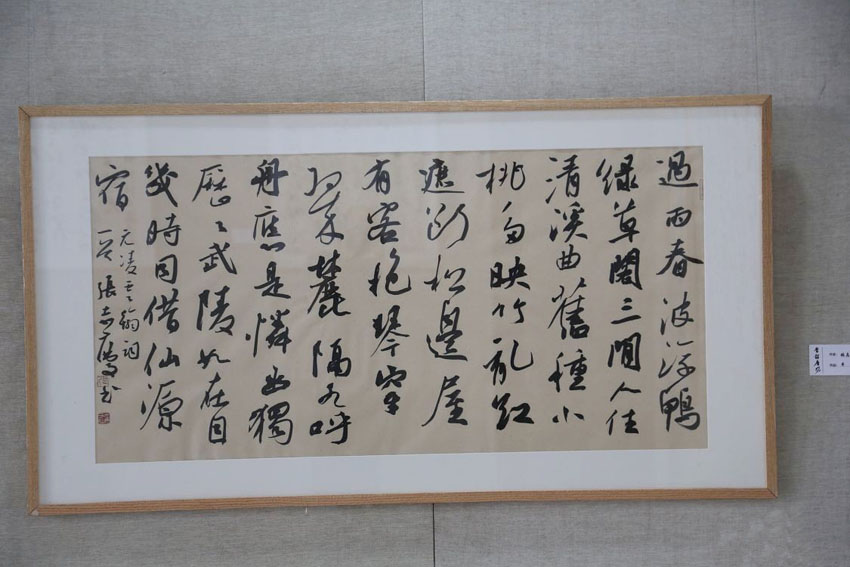 過雨春波浮鴨
绿草閣三間人住
清溪曲舊種小
桃多映竹亂紅
遮斷松邊屋
有客抱琴穿
翠麓隔水呼
舟應是憐幽獨
歷々武陵如在目
幾時同借仙源
宿 元凌雲翰詞
一首 張志書